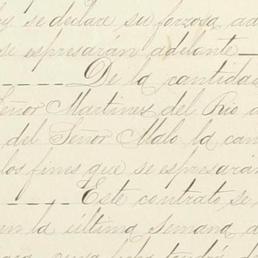 se declare su forzosa ad
se espresarán adelante
De la cantidad
Señor Martinez del Rio
del Señor Malo la can
los fines que se espresarán
Este contrato se
en la última semana